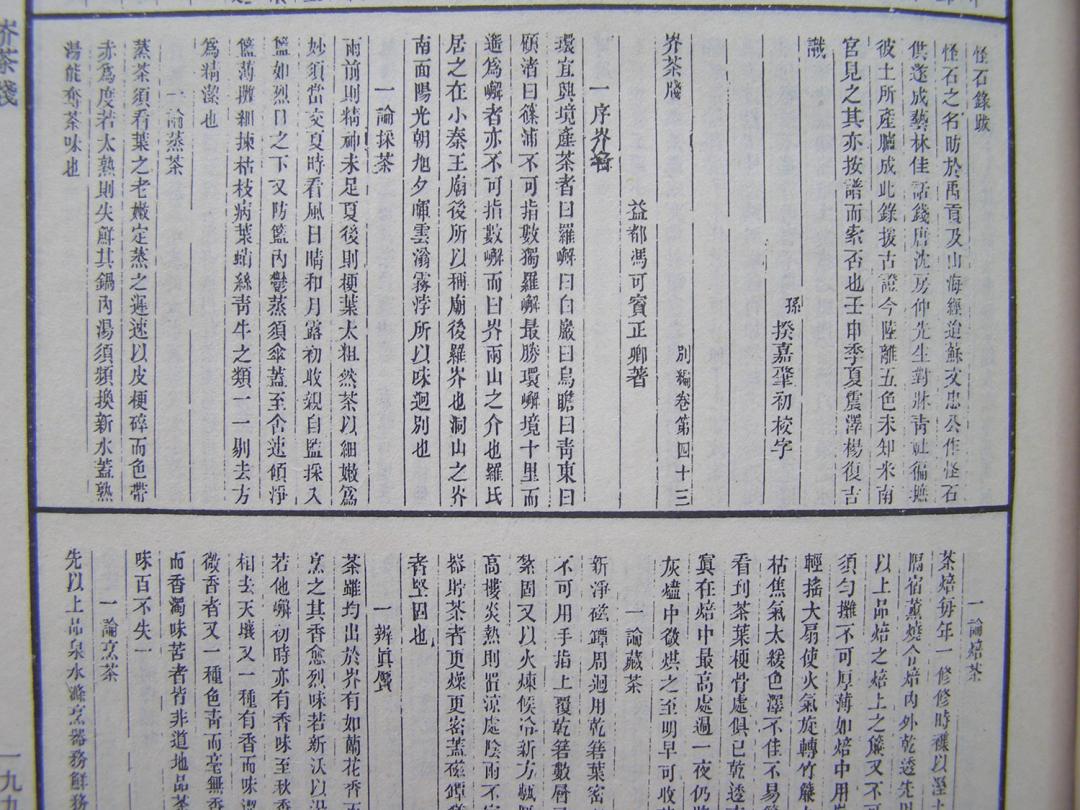 怪石錄跋
怪石之名昉於禹貢及山海經迨蘇文忠公作怪石
供遂成藝林佳話錢唐沈房仲先生對牀青社徧摭
彼土所產臚成此錄援古證今陸離五色未知米南
宮見之其亦按譜而索否也壬申季夏震澤楊復吉
識
孫 揆嘉肇初校字
別編卷第四十三
岕茶牋
益都馮可賓正卿著
一序岕名
環宜興境產茶者曰羅嶰曰白巖曰烏瞻曰青東曰
顧渚曰篠浦不可指數獨羅嶰最勝環嶰境十里而
遙為嶰者亦不可指數嶰而曰岕兩山之介也羅氏
居之在小秦王廟後所以稱廟後羅岕也洞山之岕
南面陽光朝旭夕暉雲滃霧浡所以味迥別也
一論採茶
雨前則精神未足夏後則梗葉太粗然茶以細嫩為
妙須當交夏時看風日晴和月露初收親自監採入
籃如烈日之下又防籃內鬱蒸須傘蓋至舍速傾淨
籩薄攤細揀枯枝病葉蛸絲青牛之類一一剔去方
為精潔也
一論蒸茶
蒸茶須看葉之老嫩定蒸之遲速以皮梗碎而色帶
赤為度若太熟則失鮮其鍋內湯須頻換新水蓋熟
湯能奪茶味也
一論焙茶
茶焙每年一修修時襍以溼土
隔宿薰燒令焙內外乾透先
以上品焙之焙上之簾又不
須勻攤不可厚薄如焙中用
輕搖大扇使火氣旋轉竹簾
枯焦氣太緩色澤不佳不易
看到茶葉梗骨處俱已乾透
寘在焙中最高處過一夜仍
灰爐中微烘之至明早可收
一論藏茶
新淨磁罈周迴用乾箬葉密
不可用手指上覆乾箬數層
紮固又以火煉候冷新方甎
高樓炎熱則置涼處陰雨不
器貯茶者更燥更密蓋磁罈
者堅固也
一辨真贗
茶雖均出於岕有如蘭花香
烹之其香愈烈味若新沃以
若他嶰初時亦有香味至秋
相去天壤又一種有香而味
微香者又一種色青而毫無香
而香濁味苦者皆非道地品茶
味百不失一
一論烹茶
先以上品泉水滌烹器務鮮務
岕茶牋
一九